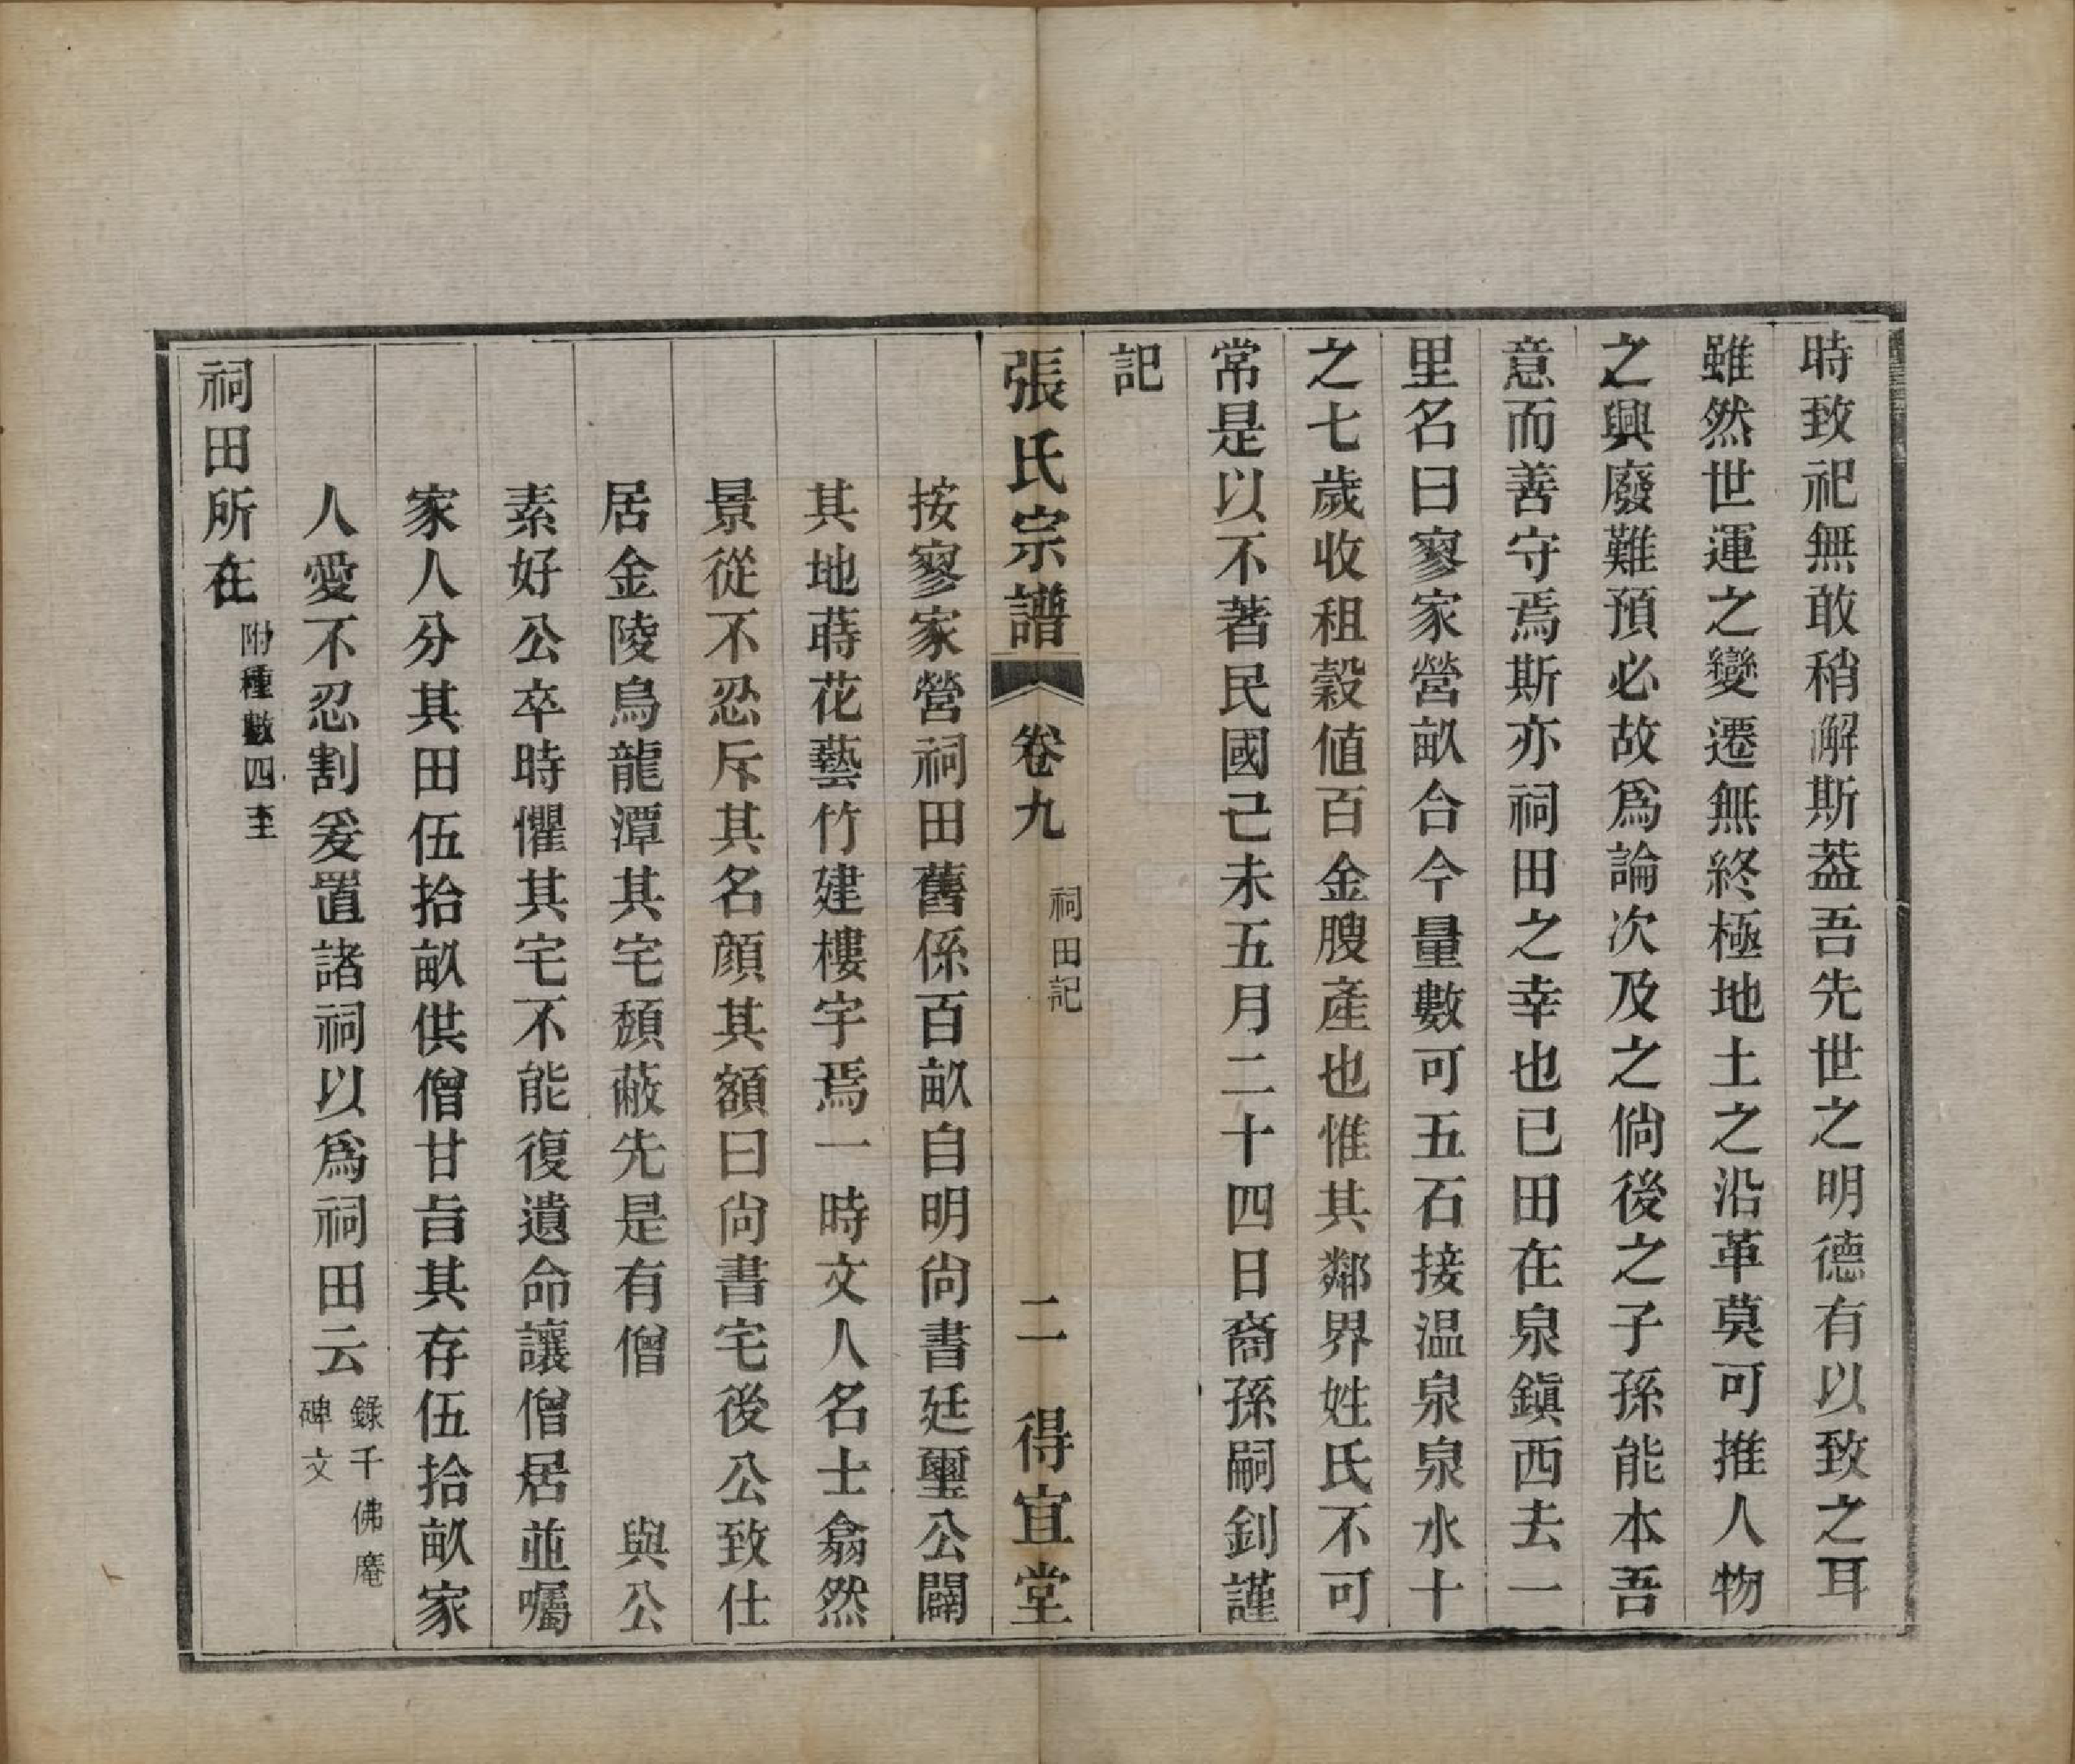 時致祀無敢稍澥斯葢吾先世之明德有以致之耳
雖然世運之變遷無終極地土之沿革莫可推人物
之興廢難預必故爲論次及之倘後之子孫能本吾
意而善守焉斯亦祠田之幸也已田在泉鎭西去一
里名曰寥家營畝合今量數可五石接温泉泉水十
之七歲收租穀値百金膄產也惟其鄰界姓氏不可
常是以不著民國己未五月二十四日裔孫嗣釗謹
記
張氏宗譜 卷九 祠田記 二 得宜堂
按寥家營祠田舊係百畝自明尙書廷璽公闢
其地蒔花藝竹建樓宇焉一時文人名士翕然
景從不忍斥其名顏其額曰尙書宅後公致仕
居金陵烏龍潭其宅頹蔽先是有僧 與公
素好公卒時懼其宅不能復遺命讓僧居並囑
家人分其田伍拾畝供僧甘旨其存伍拾畝家
人愛不忍割爰置諸祠以爲祠田云錄千佛庵
碑文
祠田所在附種數四至